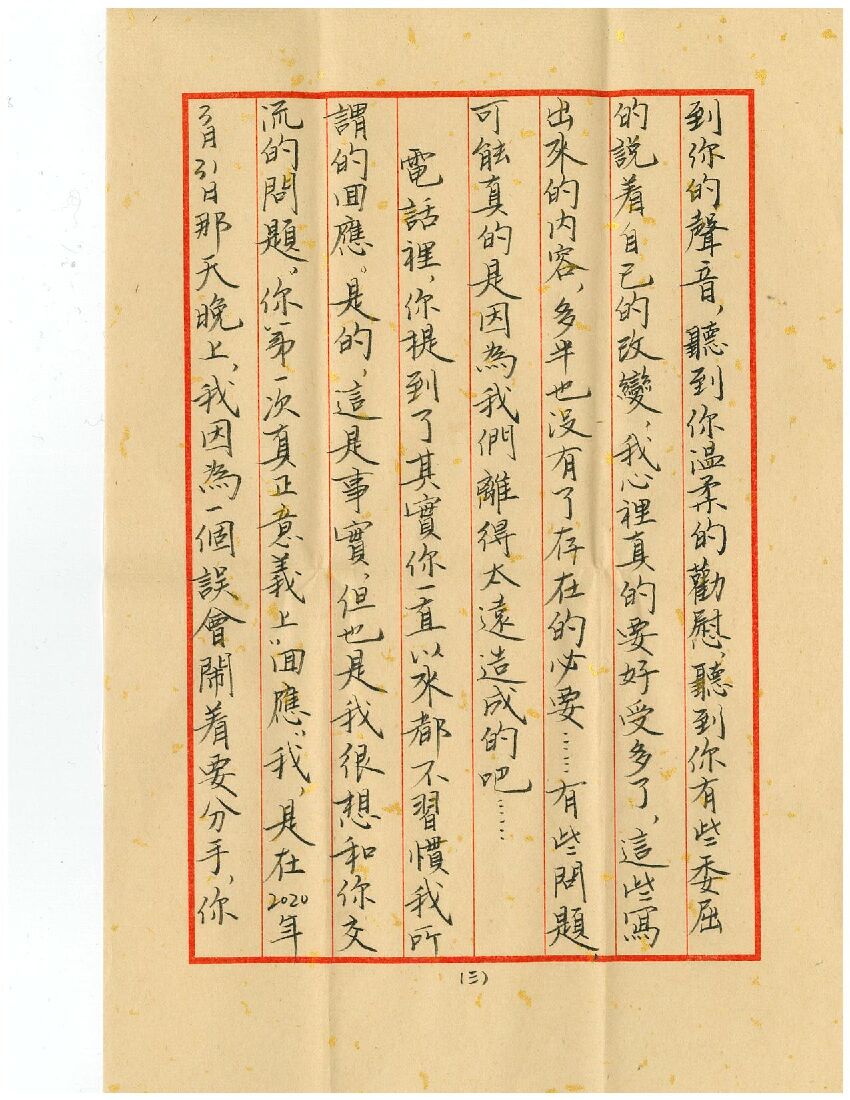 到你的聲音，聽到你溫柔的勸慰，聽到你有些委屈
的説着自己的改變，我心裡真的要好受多了，這些寫
出來的内容，多半也没有了存在的必要……有些問題，
可能真的是因為我們離得太遠造成的吧……
電話裡，你提到了其實你一直以來都不習慣我所
謂的回應。是的，這是事實，但也是我很想和你交
流的問題，你第一次真正意義上“回應”我，是在2020年
3月31日那天晚上，我因為一個誤會鬧着要分手，你
(三)